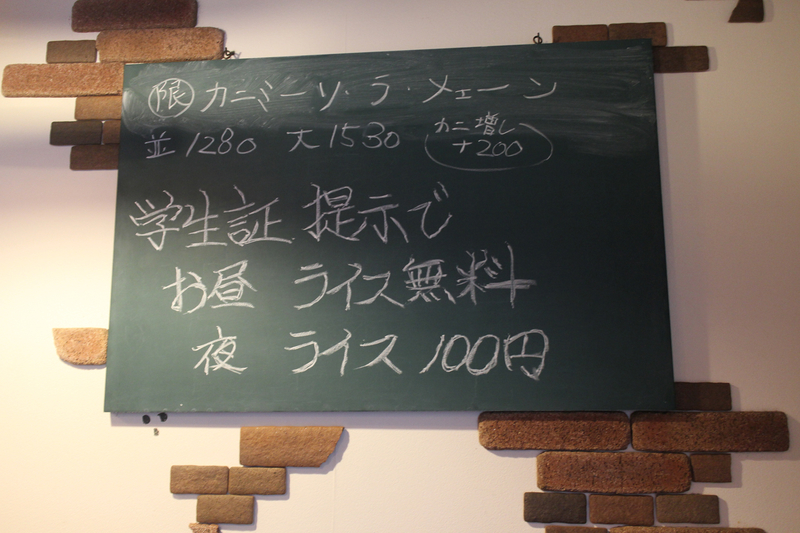 ㊙限 カニミーソ・ラ・メェーン
並1280 大1530 カニ増し
+200
学生証 提示で
お昼 ライス無料
夜 ライス 100円